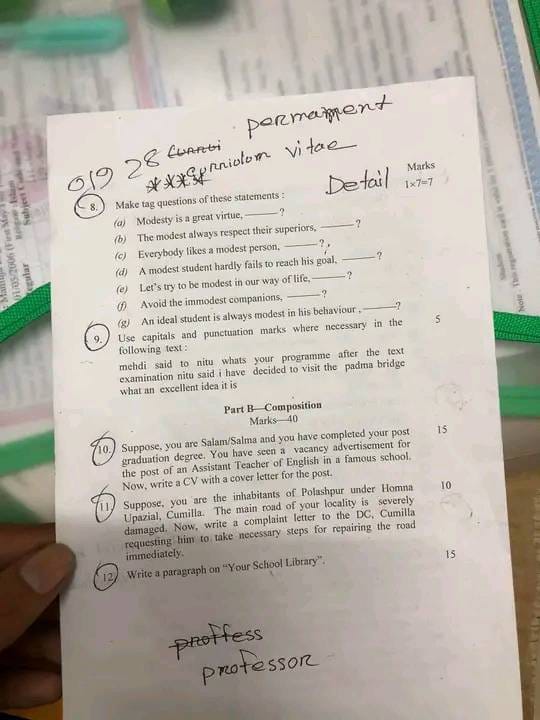 permanent
019 28 Currbi
**** Curriolom vitae
Detail
Marks
1×7=7
8. Make tag questions of these statements :
(a) Modesty is a great virtue, ——?
(b) The modest always respect their superiors, ——?
(c) Everybody likes a modest person, ——?,
(d) A modest student hardly fails to reach his goal, ——?
(e) Let's try to be modest in our way of life, ——?
(f) Avoid the immodest companions, ——?
(g) An ideal student is always modest in his behaviour , ——?
9. Use capitals and punctuation marks where necessary in the 5
following text :
mehdi said to nitu whats your programme after the text
examination nitu said i have decided to visit the padma bridge
what an excellent idea it is
Part B—Composition
Marks—40
10. Suppose, you are Salam/Salma and you have completed your post 15
graduation degree. You have seen a vacancy advertisement for
the post of an Assistant Teacher of English in a famous school.
Now, write a CV with a cover letter for the post.
11. Suppose, you are the inhabitants of Polashpur under Homna 10
Upazial, Cumilla. The main road of your locality is severely
damaged. Now, write a complaint letter to the DC, Cumilla
requesting him to take necessary steps for repairing the road
immediately.
12. Write a paragraph on “Your School Library”. 15
proffess
professor
01/05/2006 (First May